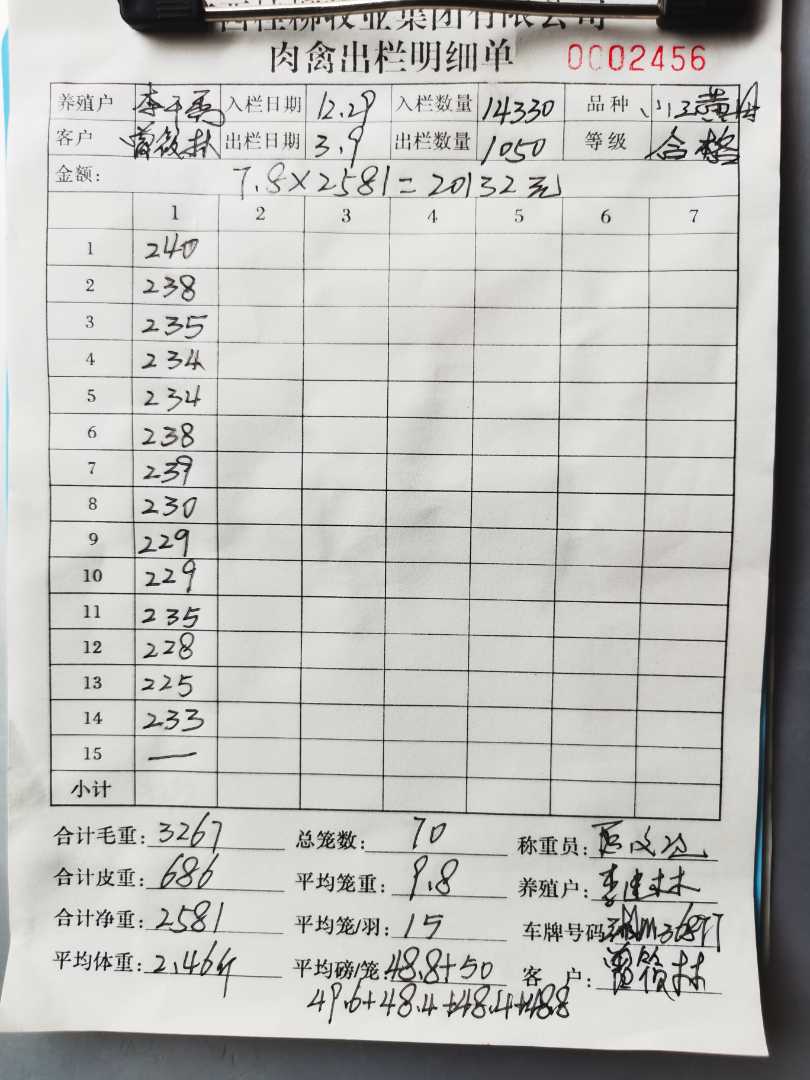 桂柳牧业集团有限公司
肉禽出栏明细单 0002456
养殖户 入栏日期 12.29 入栏数量 14330 品种
客户 出栏日期 3.9 出栏数量 1050 等级 合格
金额: 7.8×2581=20132元
1 2 3 4 5 6 7
1 240
2 238
3 235
4 234
5 234
6 238
7 239
8 230
9 229
10 229
11 235
12 228
13 225
14 233
15 —
小计
合计毛重: 3267 总笼数: 70 称重员:
合计皮重: 686 平均笼重: 9.8 养殖户:
合计净重: 2581 平均笼/羽: 15 车牌号码
平均体重: 2.46斤 平均磅/笼: 48.8+50 客 户:
49.6+48.4+48.4+48.8